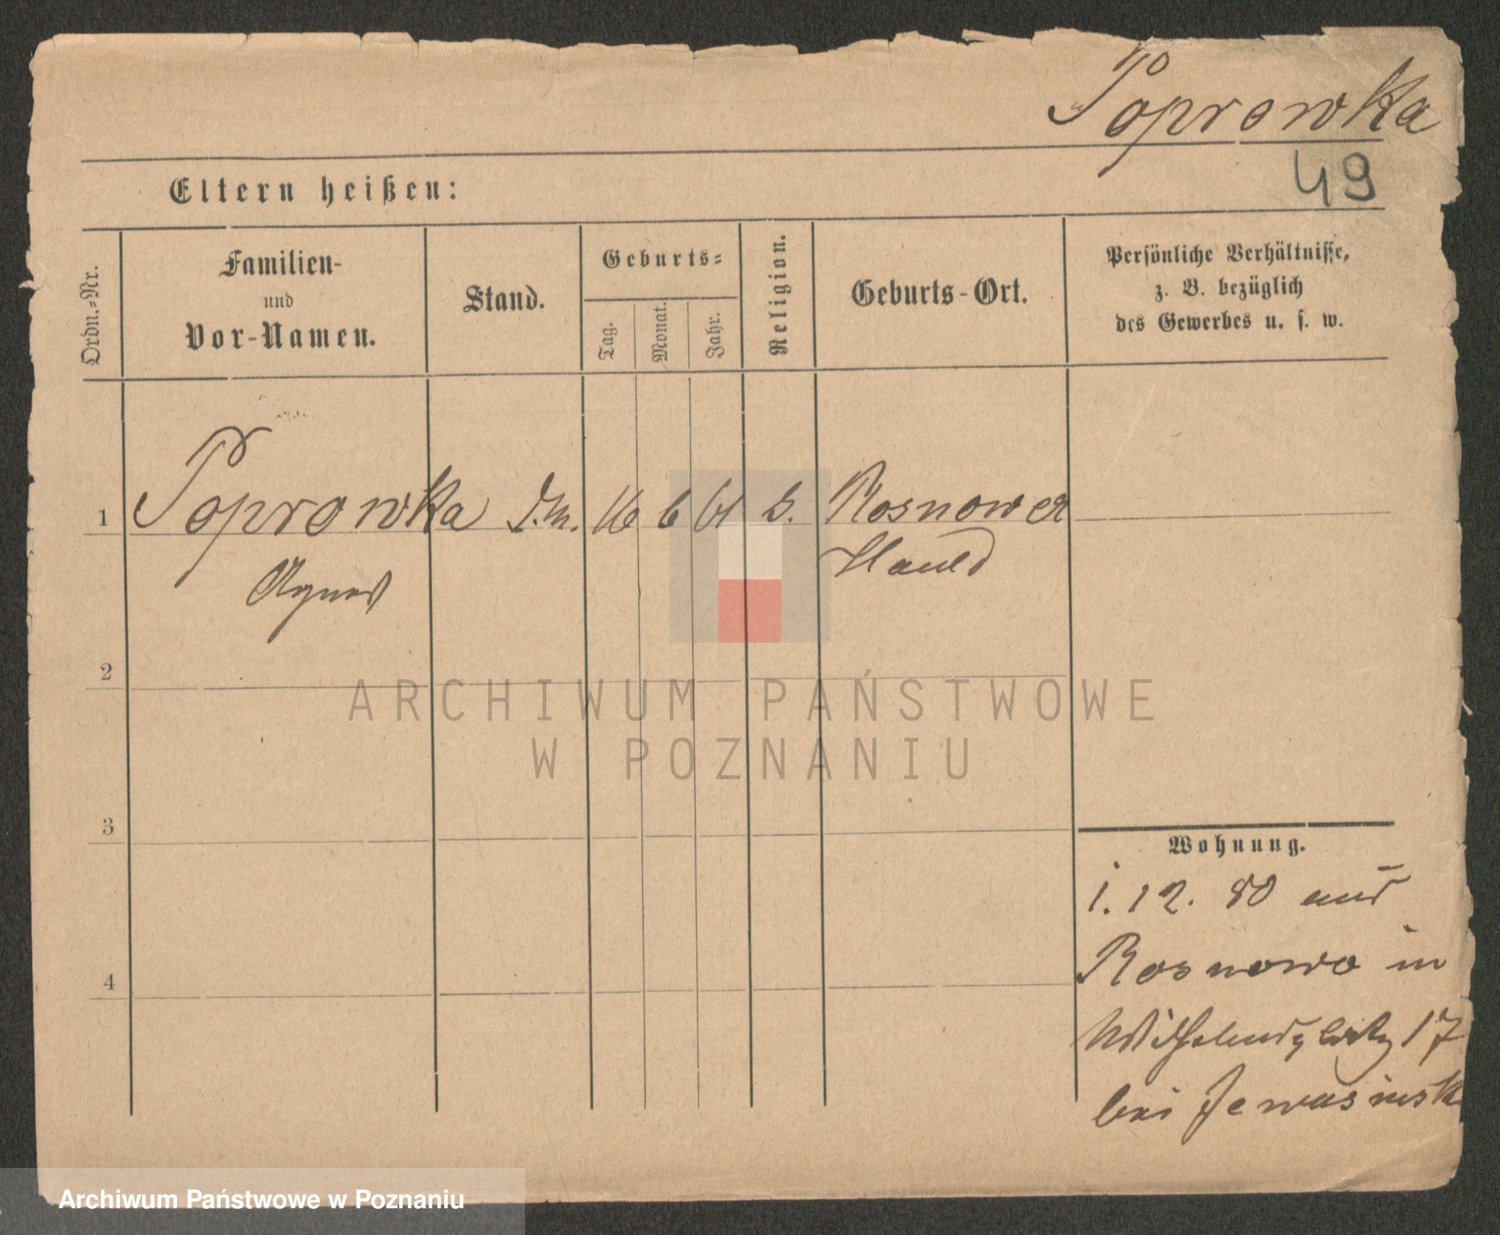 Poprowka
49
Eltern heißen:
Ordn.-Nr.
Familien-
und
Vor-Namen.
Stand.
Geburts-
Tag.
Monat.
Jahr.
Religion.
Geburts-Ort.
Persönliche Verhältnisse,
z. B. bezüglich
des Gewerbes u. s. w.
1 Poprowka 16 6 61 Rosnower
Agnes Hauld
2
3
4
Wohnung.
1. 12. 80 aus
Rosnowo in
Wilhelmsplatz 17
bei
ARCHIWUM PAŃSTWOWE
W POZNANIU
Archiwum Państwowe w Poznaniu